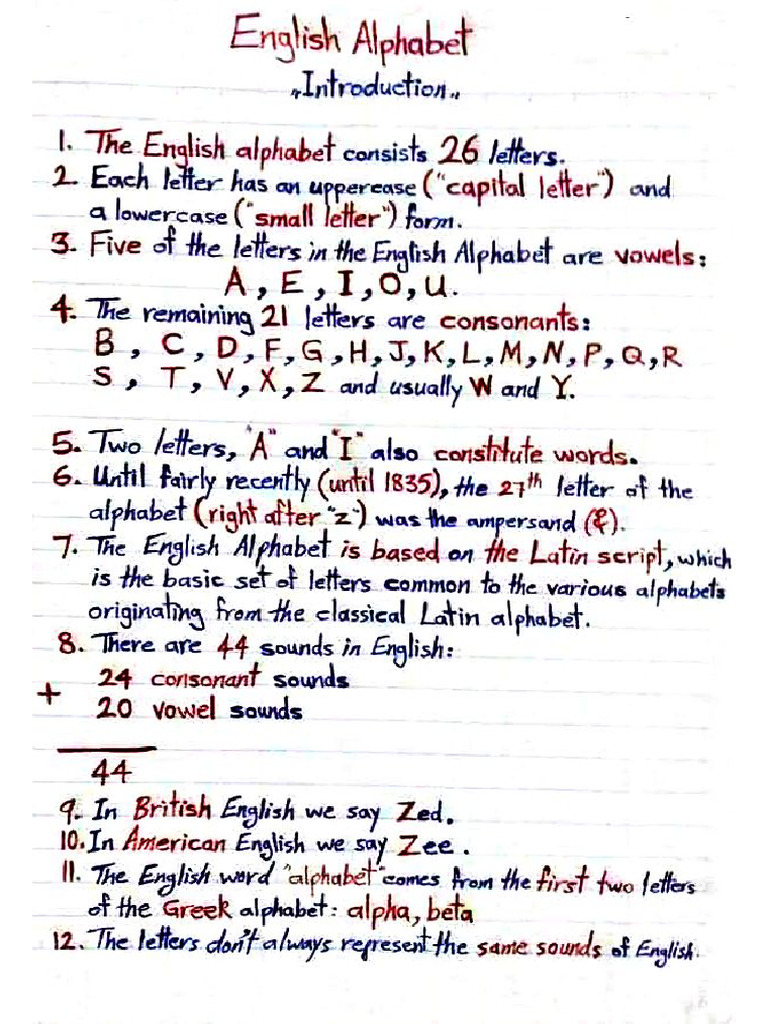 English Alphabet
"Introduction"
1. The English alphabet consists 26 letters.
2. Each letter has an uppercase ("capital letter") and
a lowercase ("small letter") form.
3. Five of the letters in the English Alphabet are vowels:
A, E, I, O, U.
4. The remaining 21 letters are consonants:
B, C, D, F, G, H, J, K, L, M, N, P, Q, R
S, T, V, X, Z and usually W and Y.
5. Two letters, "A" and "I" also constitute words.
6. Until fairly recently (until 1835), the 27th letter of the
alphabet (right after "z") was the ampersand (&).
7. The English Alphabet is based on the Latin script, which
is the basic set of letters common to the various alphabets
originating from the classical Latin alphabet.
8. There are 44 sounds in English:
24 consonant sounds
+
20 vowel sounds
44
9. In British English we say Zed.
10. In American English we say Zee.
11. The English word "alphabet" comes from the first two letters
of the Greek alphabet: alpha, beta
12. The letters don't always represent the same sounds of English.